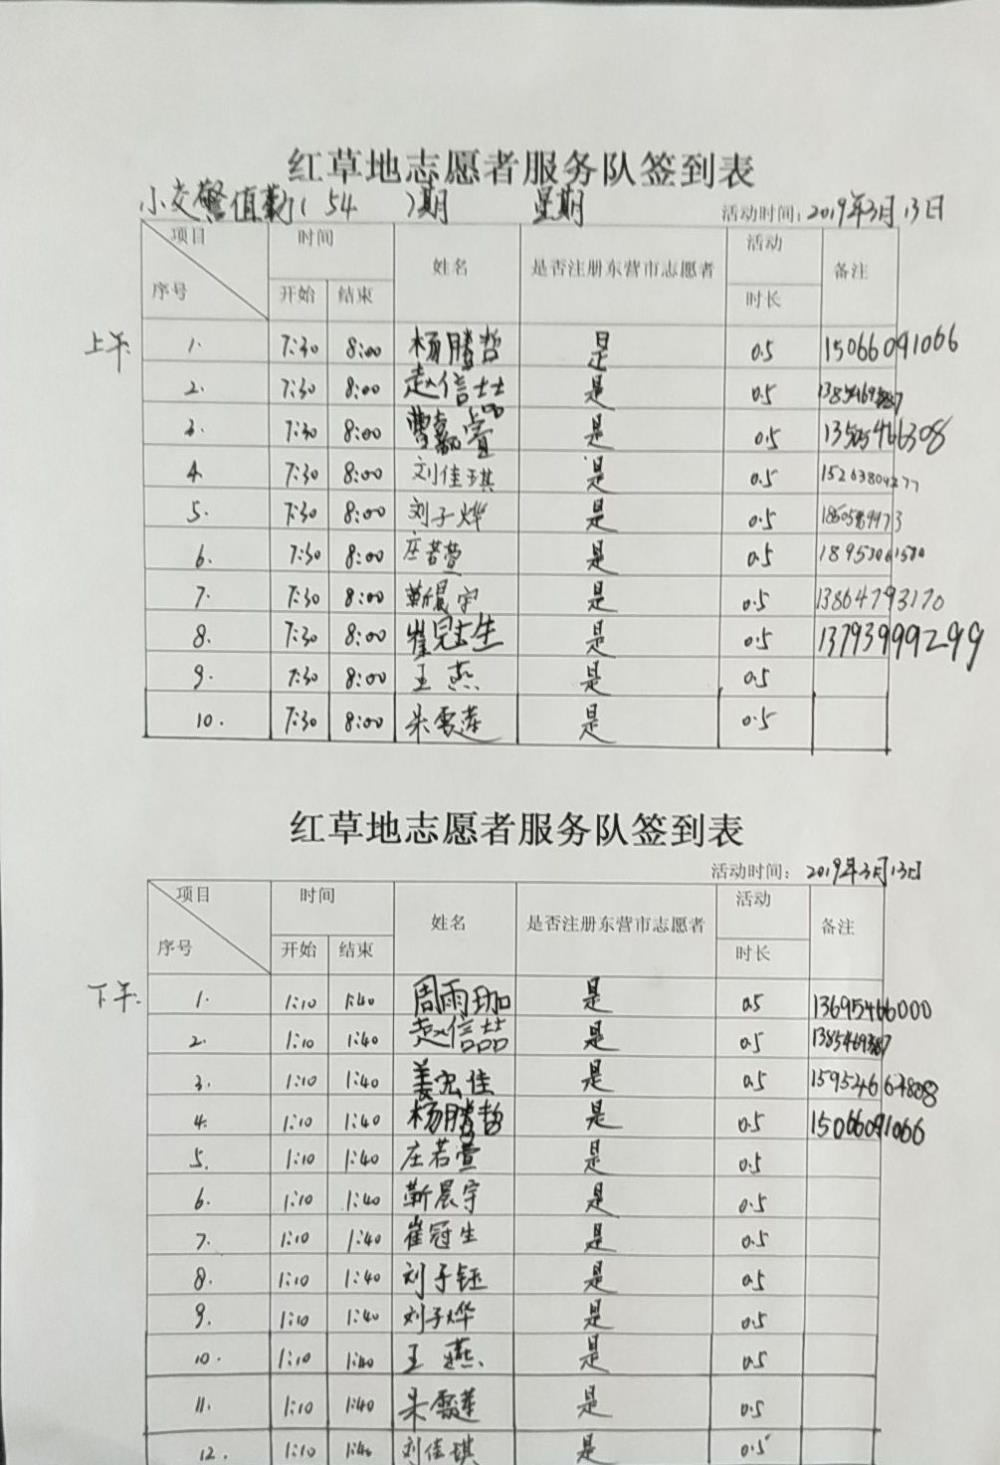 红草地志愿者服务队签到表
小交警值勤(54 )期 星期 活动时间:2019年3月13日
项目 时间 姓名 是否注册东营市志愿者 活动 备注
序号 开始 结束 时长
上午:
1. 7:30 8:00 杨腾哲 是 0.5 15066091066
2. 7:30 8:00 赵信喆 是 0.5
3. 7:30 8:00 曹嘉萱 是 0.5 13505466308
4. 7:30 8:00 刘佳琪 是 0.5 15263804277
5. 7:30 8:00 刘子烨 是 0.5
6. 7:30 8:00 庄若萱 是 0.5
7. 7:30 8:00 靳晨宇 是 0.5 13864793170
8. 7:30 8:00 崔冠生 是 0.5 13793999299
9. 7:30 8:00 王燕 是 0.5
10. 7:30 8:00 朱雪莲 是 0.5
红草地志愿者服务队签到表
活动时间: 2019年3月13日
项目 时间 姓名 是否注册东营市志愿者 活动 备注
序号 开始 结束 时长
下午:
1. 1:10 1:40 周雨珈 是 0.5 13695466000
2. 1:10 1:40 赵信喆 是 0.5
3. 1:10 1:40 姜宏佳 是 0.5
4. 1:10 1:40 杨腾哲 是 0.5 15066091066
5. 1:10 1:40 庄若萱 是 0.5
6. 1:10 1:40 靳晨宇 是 0.5
7. 1:10 1:40 崔冠生 是 0.5
8. 1:10 1:40 刘子钰 是 0.5
9. 1:10 1:40 刘子烨 是 0.5
10. 1:10 1:40 王燕 是 0.5
11. 1:10 1:40 朱雪莲 是 0.5
12. 1:10 1:40 刘佳琪 是 0.5